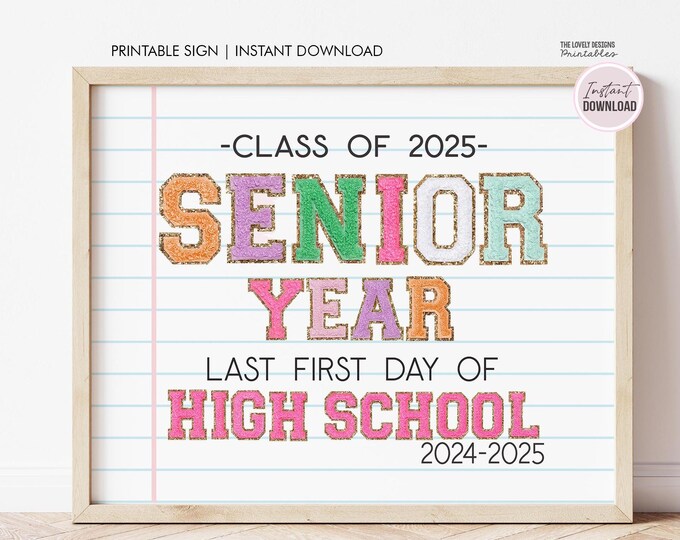 PRINTABLE SIGN | INSTANT DOWNLOAD
THE LOVELY DESIGNS
Printables
Instant
DOWNLOAD
-CLASS OF 2025-
SENIOR
YEAR
LAST FIRST DAY OF
HIGH SCHOOL
2024-2025